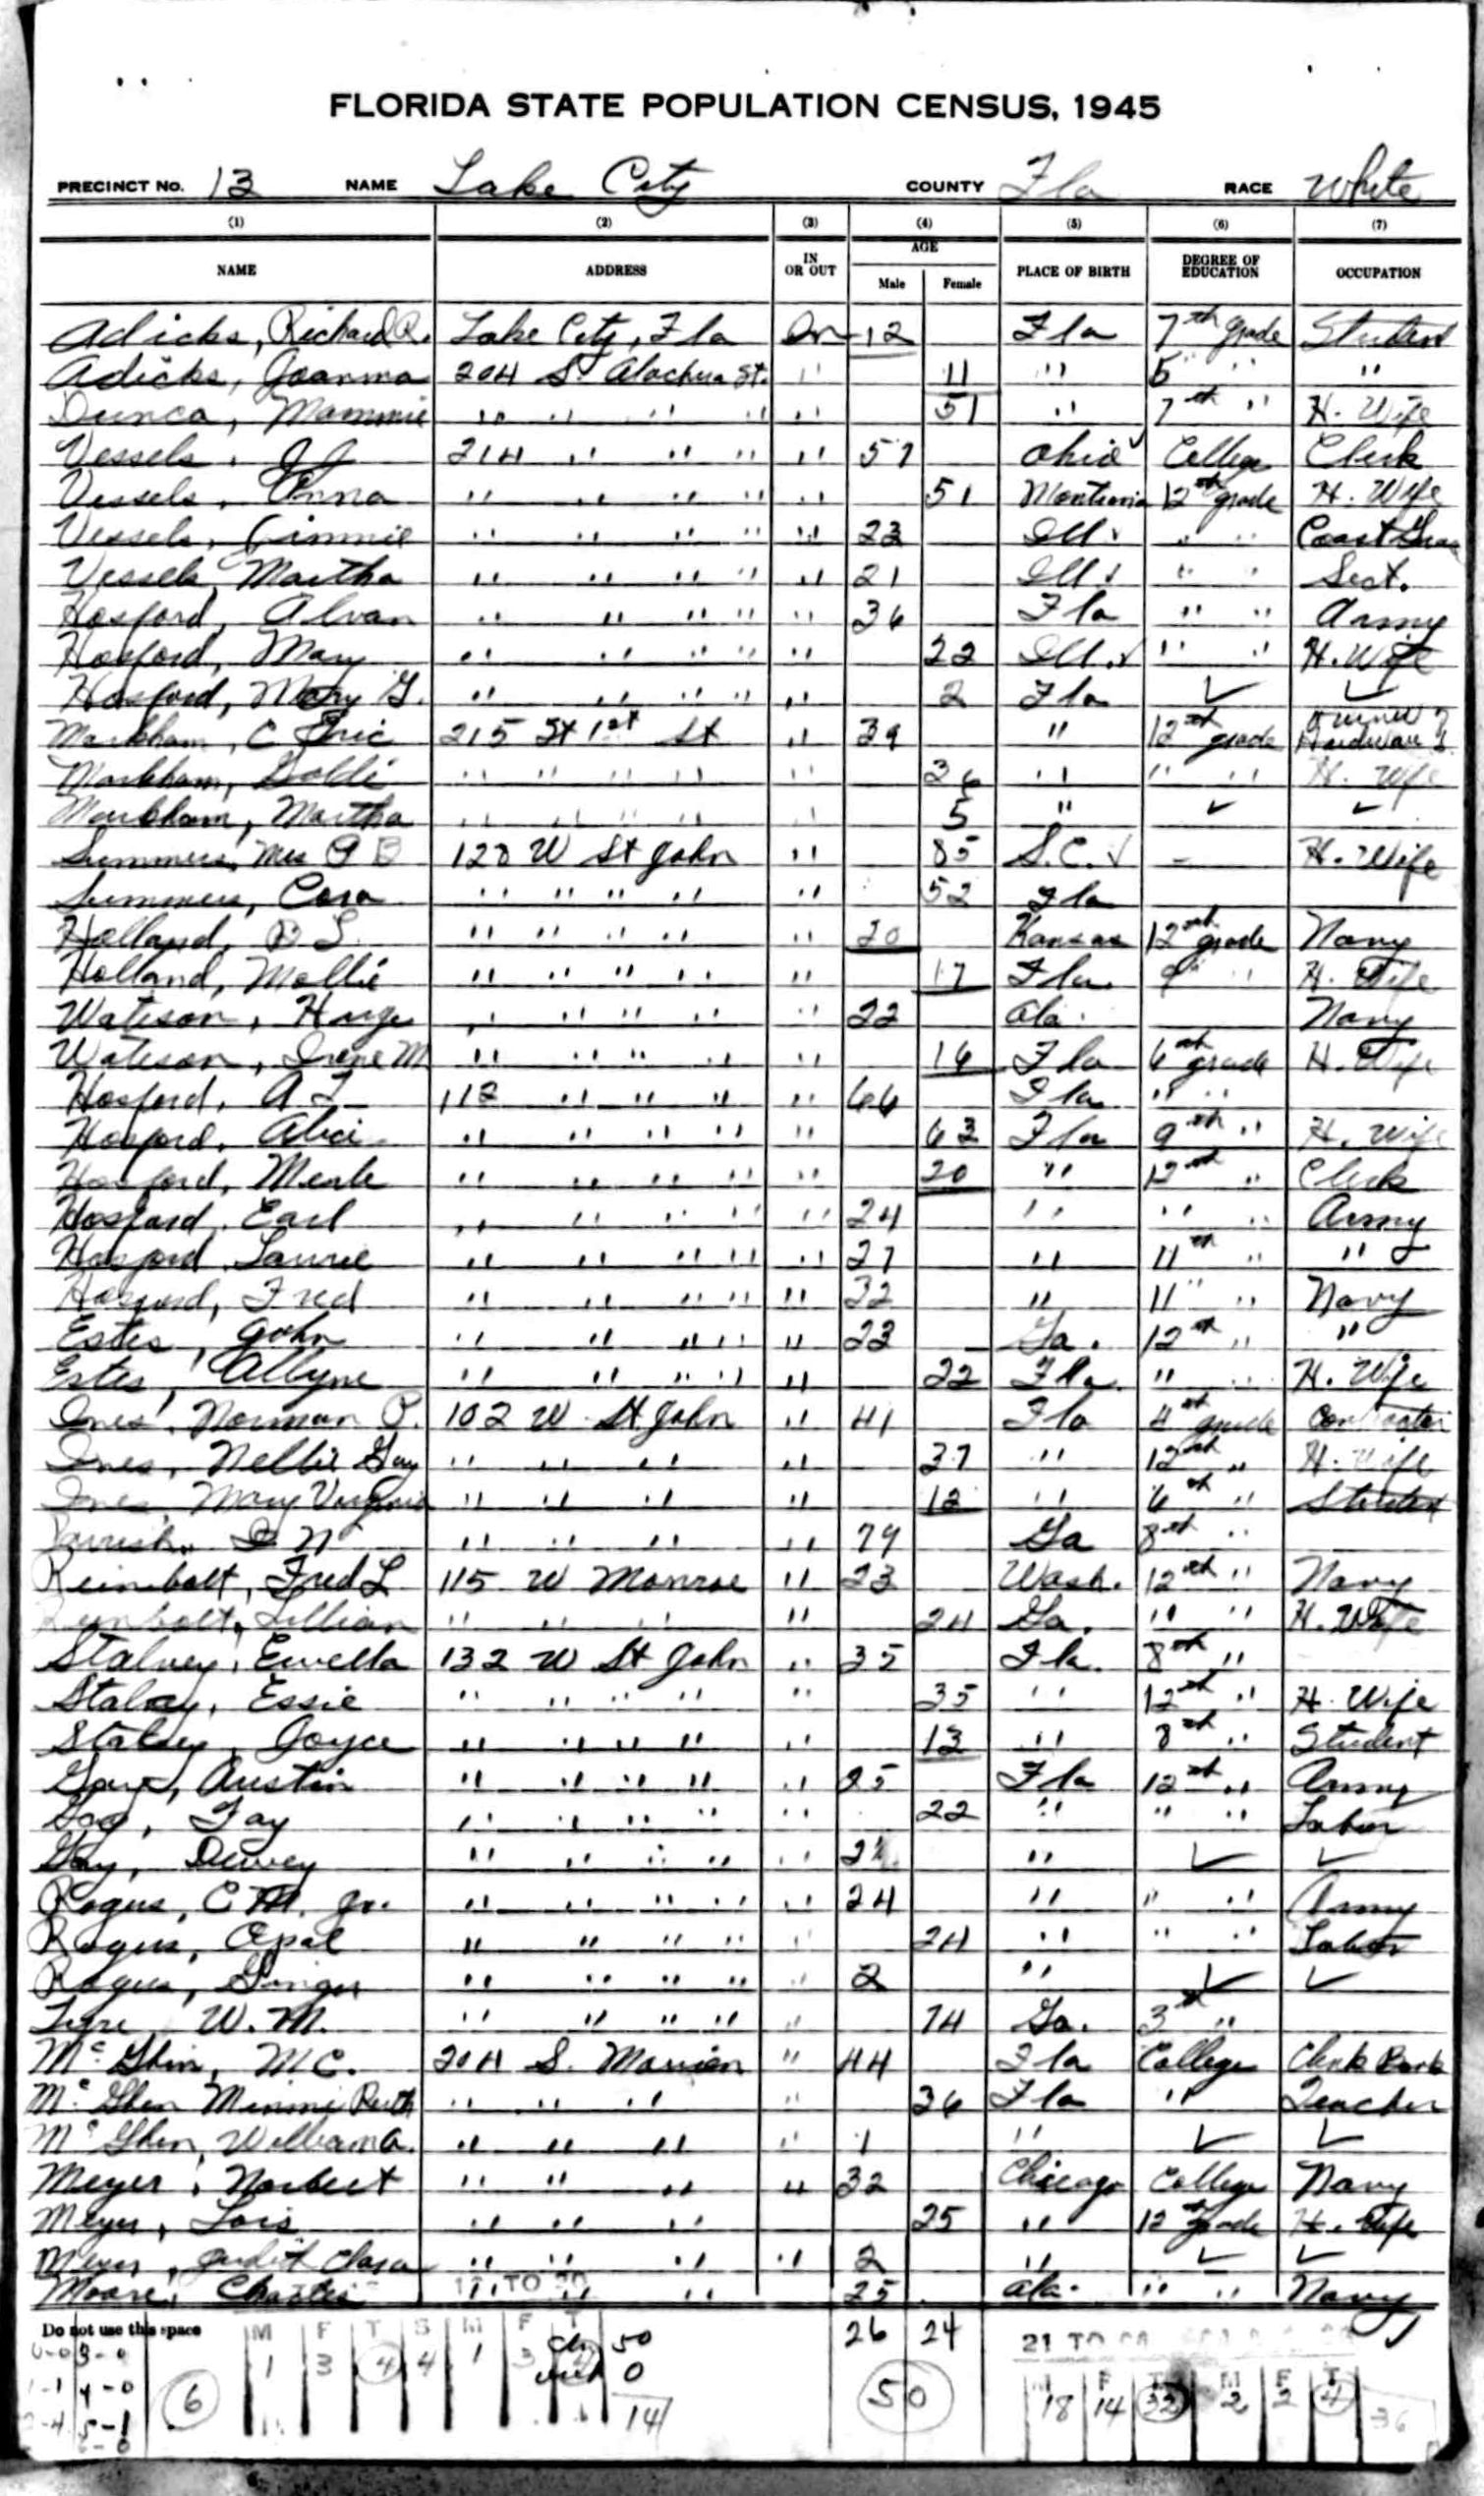 FLORIDA STATE POPULATION CENSUS, 1945
PRECINCT No. 13 NAME Lake City COUNTY Fla RACE White
(1) (2) (3) (4) (5) (6) (7)
NAME ADDRESS IN OR OUT AGE Male Female PLACE OF BIRTH DEGREE OF EDUCATION OCCUPATION
Adicks, Richard R. Lake City, Fla In 12 Fla 7th grade Student
Adicks, Joanna 204 S. Alachua St. " 11 " 5 " "
Dunca, Mammie " " " " " 51 " 7th " H. Wife
Vessels, J J 214 " " " " 57 Ohio College Clerk
Vessels, Anna " " " " " 51 Montana 12th grade H. Wife
Vessels, Jimmie " " " " " 23 Ill. " " Coast Guar
Vessels, Martha " " " " " 21 Ill. " " Sect.
Hosford, Alvan " " " " " 36 Fla " " Army
Hosford, Mary " " " " " 22 Ill. " " H. Wife
Hosford, Mary G. " " " " " 2 Fla ✓ ✓
Markham, C Eric 215 St 1st St " 39 " 12th grade Owner Hardware
Markham, Dolli " " " " " 36 " " " H. Wife
Markham, Martha " " " " " 5 " ✓ ✓
Summers, Mrs 128 W St John " 85 S.C. ✓ - H. Wife
Summers, Cora " " " " " 52 Fla
Holland, S. " " " " " 20 Kansas 12th grade Navy
Holland, Mollie " " " " " 17 Fla. 9 " " H. Wife
Watison, " " " " " 22 Ala. Navy
Watison, Irene M " " " " " 16 Fla 6th grade H. Wife
Hosford, A 112 " " " " 66 Fla. " "
Hosford, Alice " " " " " 63 Fla 9th " H. Wife
Hosford, Merle " " " " " 20 " 12th " Clerk
Hosford, Earl " " " " " 24 " " " Army
Hosford Laurie " " " " " 27 " 11th " "
Hosford, Fred " " " " " 32 " 11 " " Navy
Estes, John " " " " " 23 Ga. 12th " "
Estes, Allyne " " " " " 22 Fla. " " H. Wife
Ives, Norman P. 102 W St John " 41 Fla 4th grade Contractor
Ives, Nellie Gay " " " " 37 " 12th " H. Wife
Ives, Mary Virginia " " " " 12 " 6th " Student
Parrish, D N " " " " 79 Ga 8th "
Reimbolt, Fred L 115 W Monroe " 23 Wash. 12th " Navy
Reimbolt, Lillian " " " " 24 Ga. " " H. Wife
Stalvey, Ewella 132 W St John " 35 Fla. 8th "
Stalvey, Essie " " " " " 35 " 12th " H. Wife
Stalvey, Joyce " " " " " 13 " 8th " Student
Gay, Austin " " " " " 25 Fla 12th " Army
Gay, Fay " " " " " 22 " " " Labor
Gay, Dewey " " " " " " ✓ ✓
Rogus, C M. Jr. " " " " " 24 " " " Army
Rogus, Opal " " " " " 24 " " " Labor
Rogus, Ginger " " " " " 2 " ✓ ✓
Tyre W. M. " " " " " 74 Ga. 3 "
McGhin, M C. 204 S. Marion " 44 Fla College Clerk Bank
McGhin Minnie Ruth " " " " 36 Fla " Teacher
McGhin, William A. " " " " 1 " ✓ ✓
Meyer, Norbert " " " " 32 Chicago College Navy
Meyer, Lois " " " " 25 " 12 grade H. Wife
Meyer, Judith Clara " " " " 2 " ✓ ✓
Moore, Charles " " " 25 Ala. " " Navy
Do not use this space
M F T S M F
1 3 4 4 1 3
50
0
14
26 24
50
21 TO
M F T M F T
18 14 32 2 2 4
36
0-0 3-0
1-1 4-0
-4 5-1
6-0
6